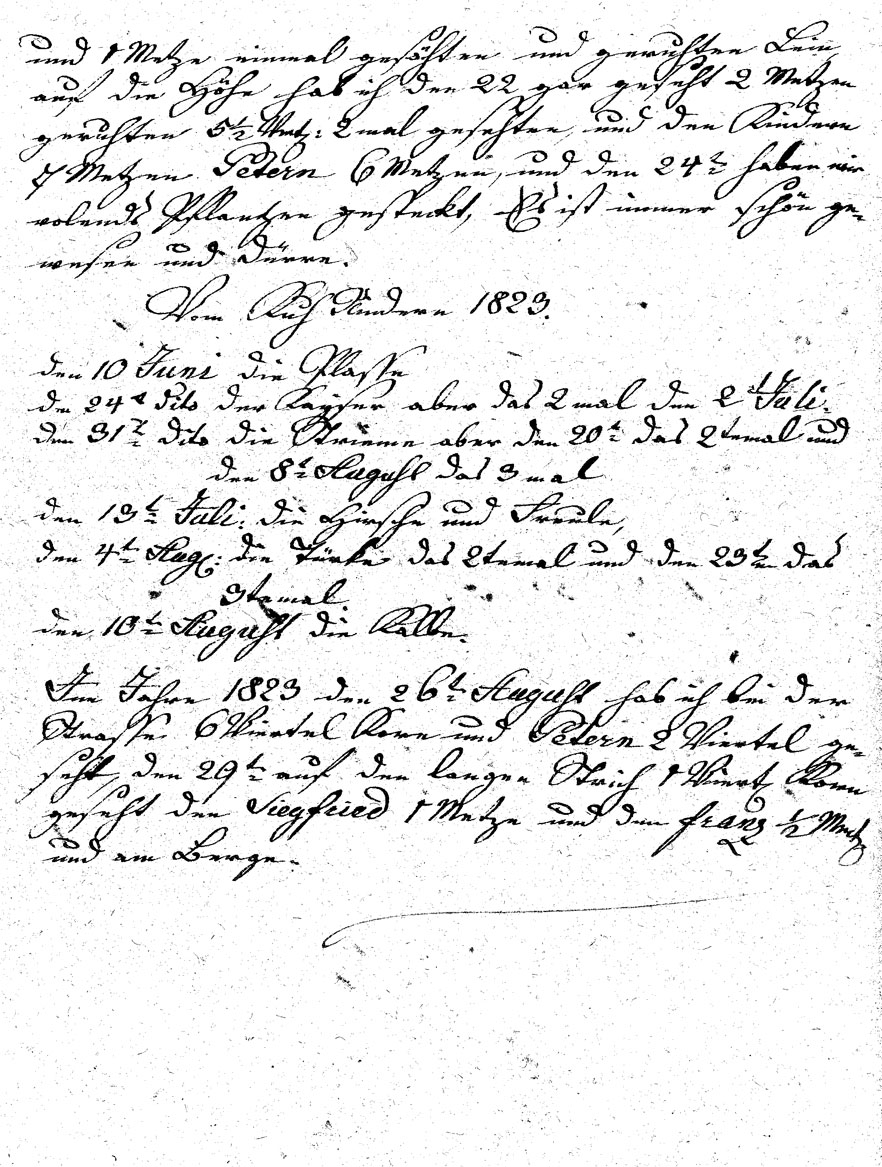 und 1 Metze einmal gesöhten und geruhten Lein
auf die Höhe hab ich den 22 gar geseht 2 Metzen
geruhten 5½ Vrt: 2 mal gesehten, und den Kindern
7 Metzen Petern 6 Metzen, und den 24t haben wir
volends Pflantzen gesteckt, Es ist immer schön ge-
wesen und dürre.
Vom Kuh Rindern 1823.
den 10 Juni die Blasse
den 24t dito der Kayser aber das 2 mal den 2t Juli.
den 31t dito die Strieme aber den 20t das 2temal und
den 8t August das 3 mal
den 13t Juli: die Hirsche und Freule,
den 4t Aug: die Türke das 2temal und den 23t das
3temal.
den 10t August die Kalbe.
Im Jahre 1823 den 26t August hab ich bei der
Strasse 6 Viertel Korn und Petern 2 Viertel ge-
seht, den 29t auf den langen Strich 1 Viert, Korn
geseht den Siegfried 1 Metze und den franz ½ Metz
und am Berge.